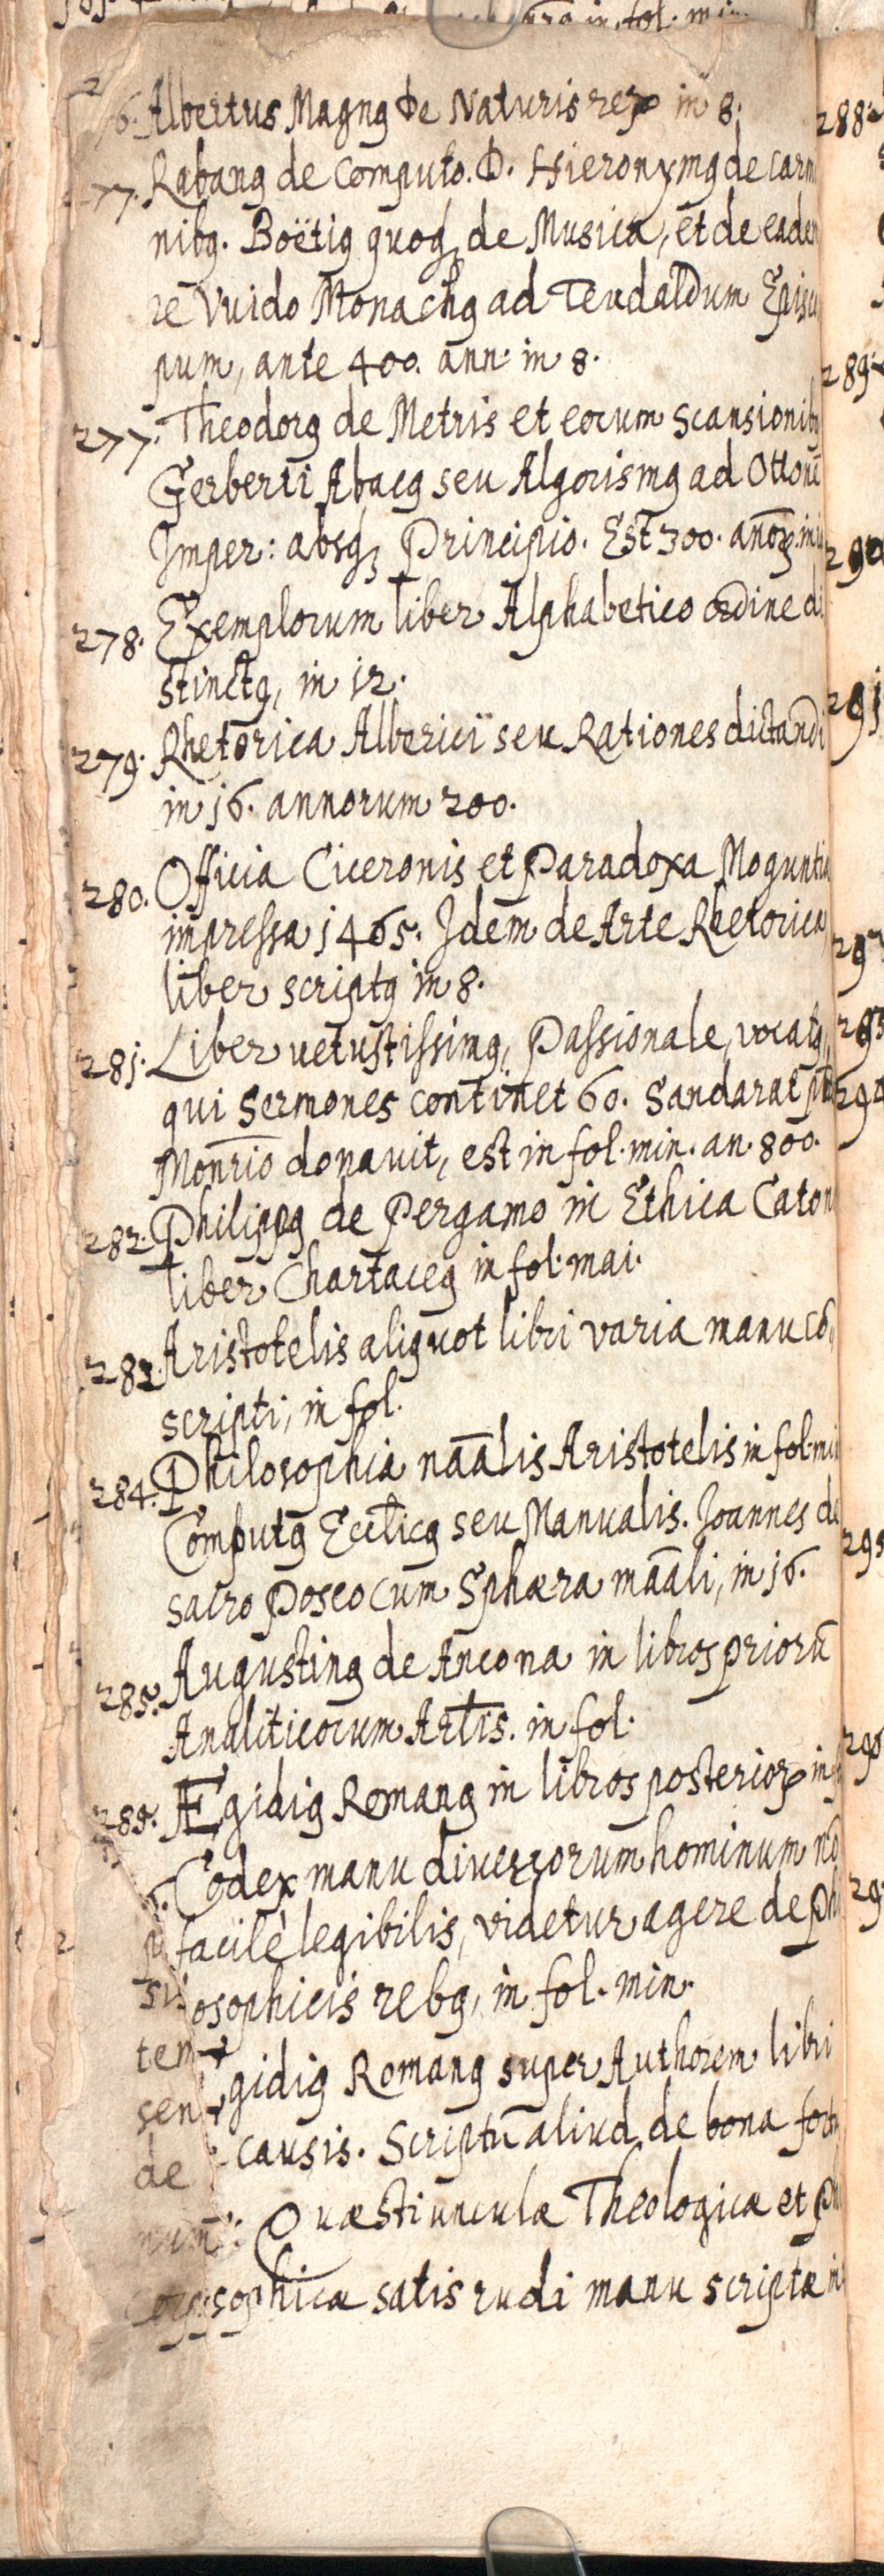 76. Albertus Magnꝰ De Naturis reꝝ in 8.
77. Rabanꝰ de Computo. D. Hieronymꝰ de Carmi
nibꝰ. Boëtiꝰ quoqꝫ de Musica, et de eadem
re Vuido Monachꝰ ad Teudaldum Episco
pum, ante 400. ann. in 8.
277. Theodorꝰ de Metris et eorum scansionibꝰ
Gerberti Abacꝰ seu Algorismꝰ ad Ottonē
Imper: absqꝫ Principio. Est 300. anoꝝ. in
278. Exemplorum liber Alphabetico ordine di
stinctꝰ, in 12.
279. Rhetorica Albericii seu Rationes dictandi
in 16. annorum 200.
280. Officia Ciceronis et Paradoxa Moguntiæ
impressa 1465. Idem de Arte Rhetorica
liber scriptꝰ in 8.
281. Liber uetustissimꝰ, Passionale, vocatꝰ,
qui Sermones continet 60. Sandarat
Monrio donauit, est in fol. min. an. 800.
282. Philippꝰ de Pergamo in Ethica Caton
liber Chartaceꝰ in fol. mai.
283. Aristotelis aliquot libri varia manu cō
scripti, in fol.
284. Philosophia naālis Aristotelis in fol. mi
Computꝰ Eccl̄icꝰ seu Manualis. Joannes de
sacro Bosco cum Sphæra māāli, in 16.
285. Augustinꝰ de Ancona in libros priorū
Analiticorum Artis. in fol.
289. Ægidiꝰ Romanꝰ in libros posterioꝝ in
Codex manu diuersorum hominum nō
facilè legibilis, videtur agere de Phi
osophicis rebꝰ, in fol. min.
gidiꝰ Romanꝰ super Authorem libri
causis. Scriptū aliud de bona fort
Quæstiunculæ Theologicæ et Ph
sophicæ satis rudi manu scriptæ in